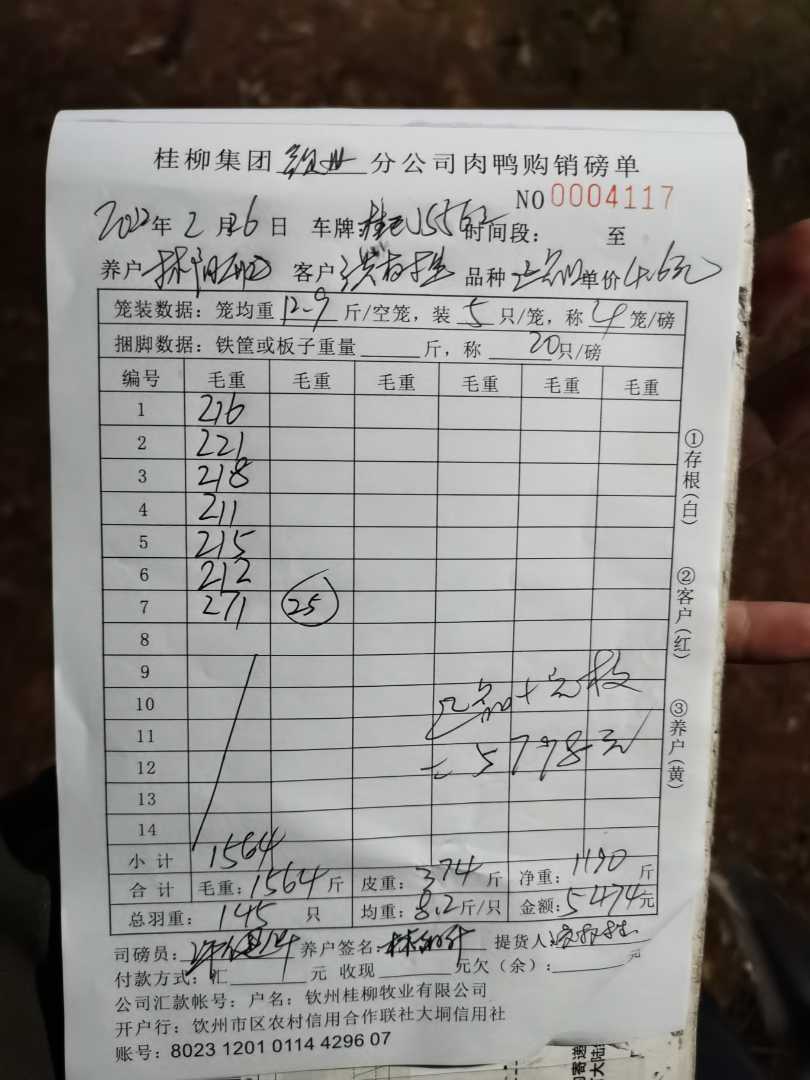 桂柳集团 分公司肉鸭购销磅单
NO 0004117
2022年2月16日 车牌 时间段： 至
养户 客户 品种 单价4.6元
笼装数据：笼均重12.9斤/空笼，装5只/笼，称4笼/磅
捆脚数据：铁筐或板子重量 斤，称20只/磅
编号 毛重 毛重 毛重 毛重 毛重 毛重
1 216
2 221
3 218
4 211
5 215
6 212
7 271 25
8
9
10
11
12
13
14
5798元
小计 1564
合计 毛重：1564斤 皮重：374斤 净重：1190斤
总羽重：145只 均重：8.2斤/只 金额：5474元
司磅员： 养户签名： 提货人：
付款方式：汇 元 收现 元欠（余）： 元
公司汇款帐号：户名：钦州桂柳牧业有限公司
开户行：钦州市区农村信用合作联社大垌信用社
账号：8023 1201 0114 4296 07
①存根（白）
②客户（红）
③养户（黄）